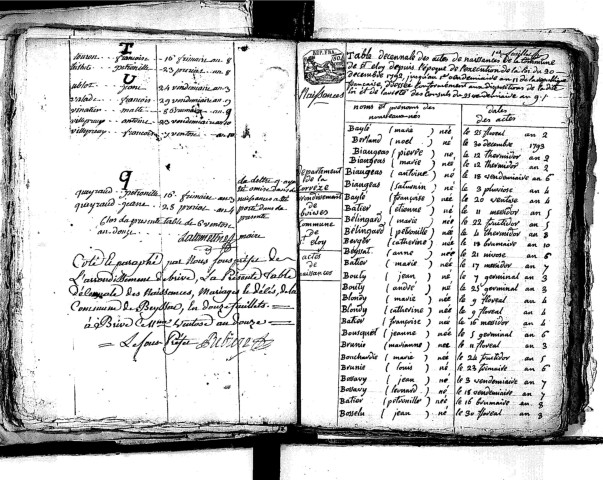 T
touron françois 16 frimaire an 8
petronille 23 pluviose an 8
U
29 vendemiaire an 3
valade françois 29 vendemiaire an 9
an 9
antoine 20 vendemiaire an 10
françois ventose an 10
Q
quayraud petronille 16 frimaire an 3
quayraud jeane 28 an 4
la lettre q ayant
été omise dans les
naissances a été
dans la
présente
Clos la presente table le 6 ventose
an douze.
maire
Coté et paraphé par Nous sous préfet de
l'arrondissement de brive. La Présente Table
décennale des Naissances, Mariages et Décès, de la
Commune de Beyssac, en douze feuillets.
à Brive le Ventose an douze
Le sous Préfet
1er feuillet
Table decennale des actes de naissances de la Commune
de St eloy depuis l'époque de l'execution de la loi du 20
decembre 1792, jusqu'au 1er vendemiaire an 11 de la republique
française, dressée conformement aux dispositions de la dite
loi et de l'arreté des Consuls du 25 vendemiaire an 9.
Naissances
noms et prenoms des nouveaux nés
dates des actes
departement
de la
Correze
arrondissement
de
brives
commune
de
St eloy
actes
de
naissances
Bayle (marie) née le 25 floreal an 2
Borland (noel) né le 30 decembre 1793
Biaugeas (pierre) né le 12 thermidor an 2
Biaugeas (marie) née le 12 thermidor an 2
Biaugeas (antoine) né le 18 vendemiaire an 6
Biaugeas () né le 3 pluviose an 4
Bayle (françoise) née le 20 ventose an 4
Batier (etienne) né le 11 messidor an 5
Bélingard (marie) née le 22 fructidor an 5
Bélingard (petronille) née le 11 thermidor an 8
Bergle (catherine) née le 19 brumaire an 10
Beyssat (anne) née le 21 nivose an 6
Batier (marie) née le 17 messidor an 7
Bouty (jean) né le 7 germinal an 3
Bouty (andré) né le 25 germinal an 3
Blondy (marie) née le 9 floreal an 4
Blondy (catherine) née le 9 floreal an 4
Batier (françoise) née le 16 messidor an 4
Bousquet (jeanne) née le 5 germinal an 6
Brunie (marianne) née le 11 floreal an 3
Bouchardie (marie) née le 24 fructidor an 5
Brunie (louis) né le 23 frimaire an 6
Bossavy (jean) né le 3 vendemiaire an 7
Bossavy (leonard) né le 18 vendemiaire an 7
Batier (petronille) née le 16 brumaire an 8
Bosselu (jean) né le 30 floreal an 3